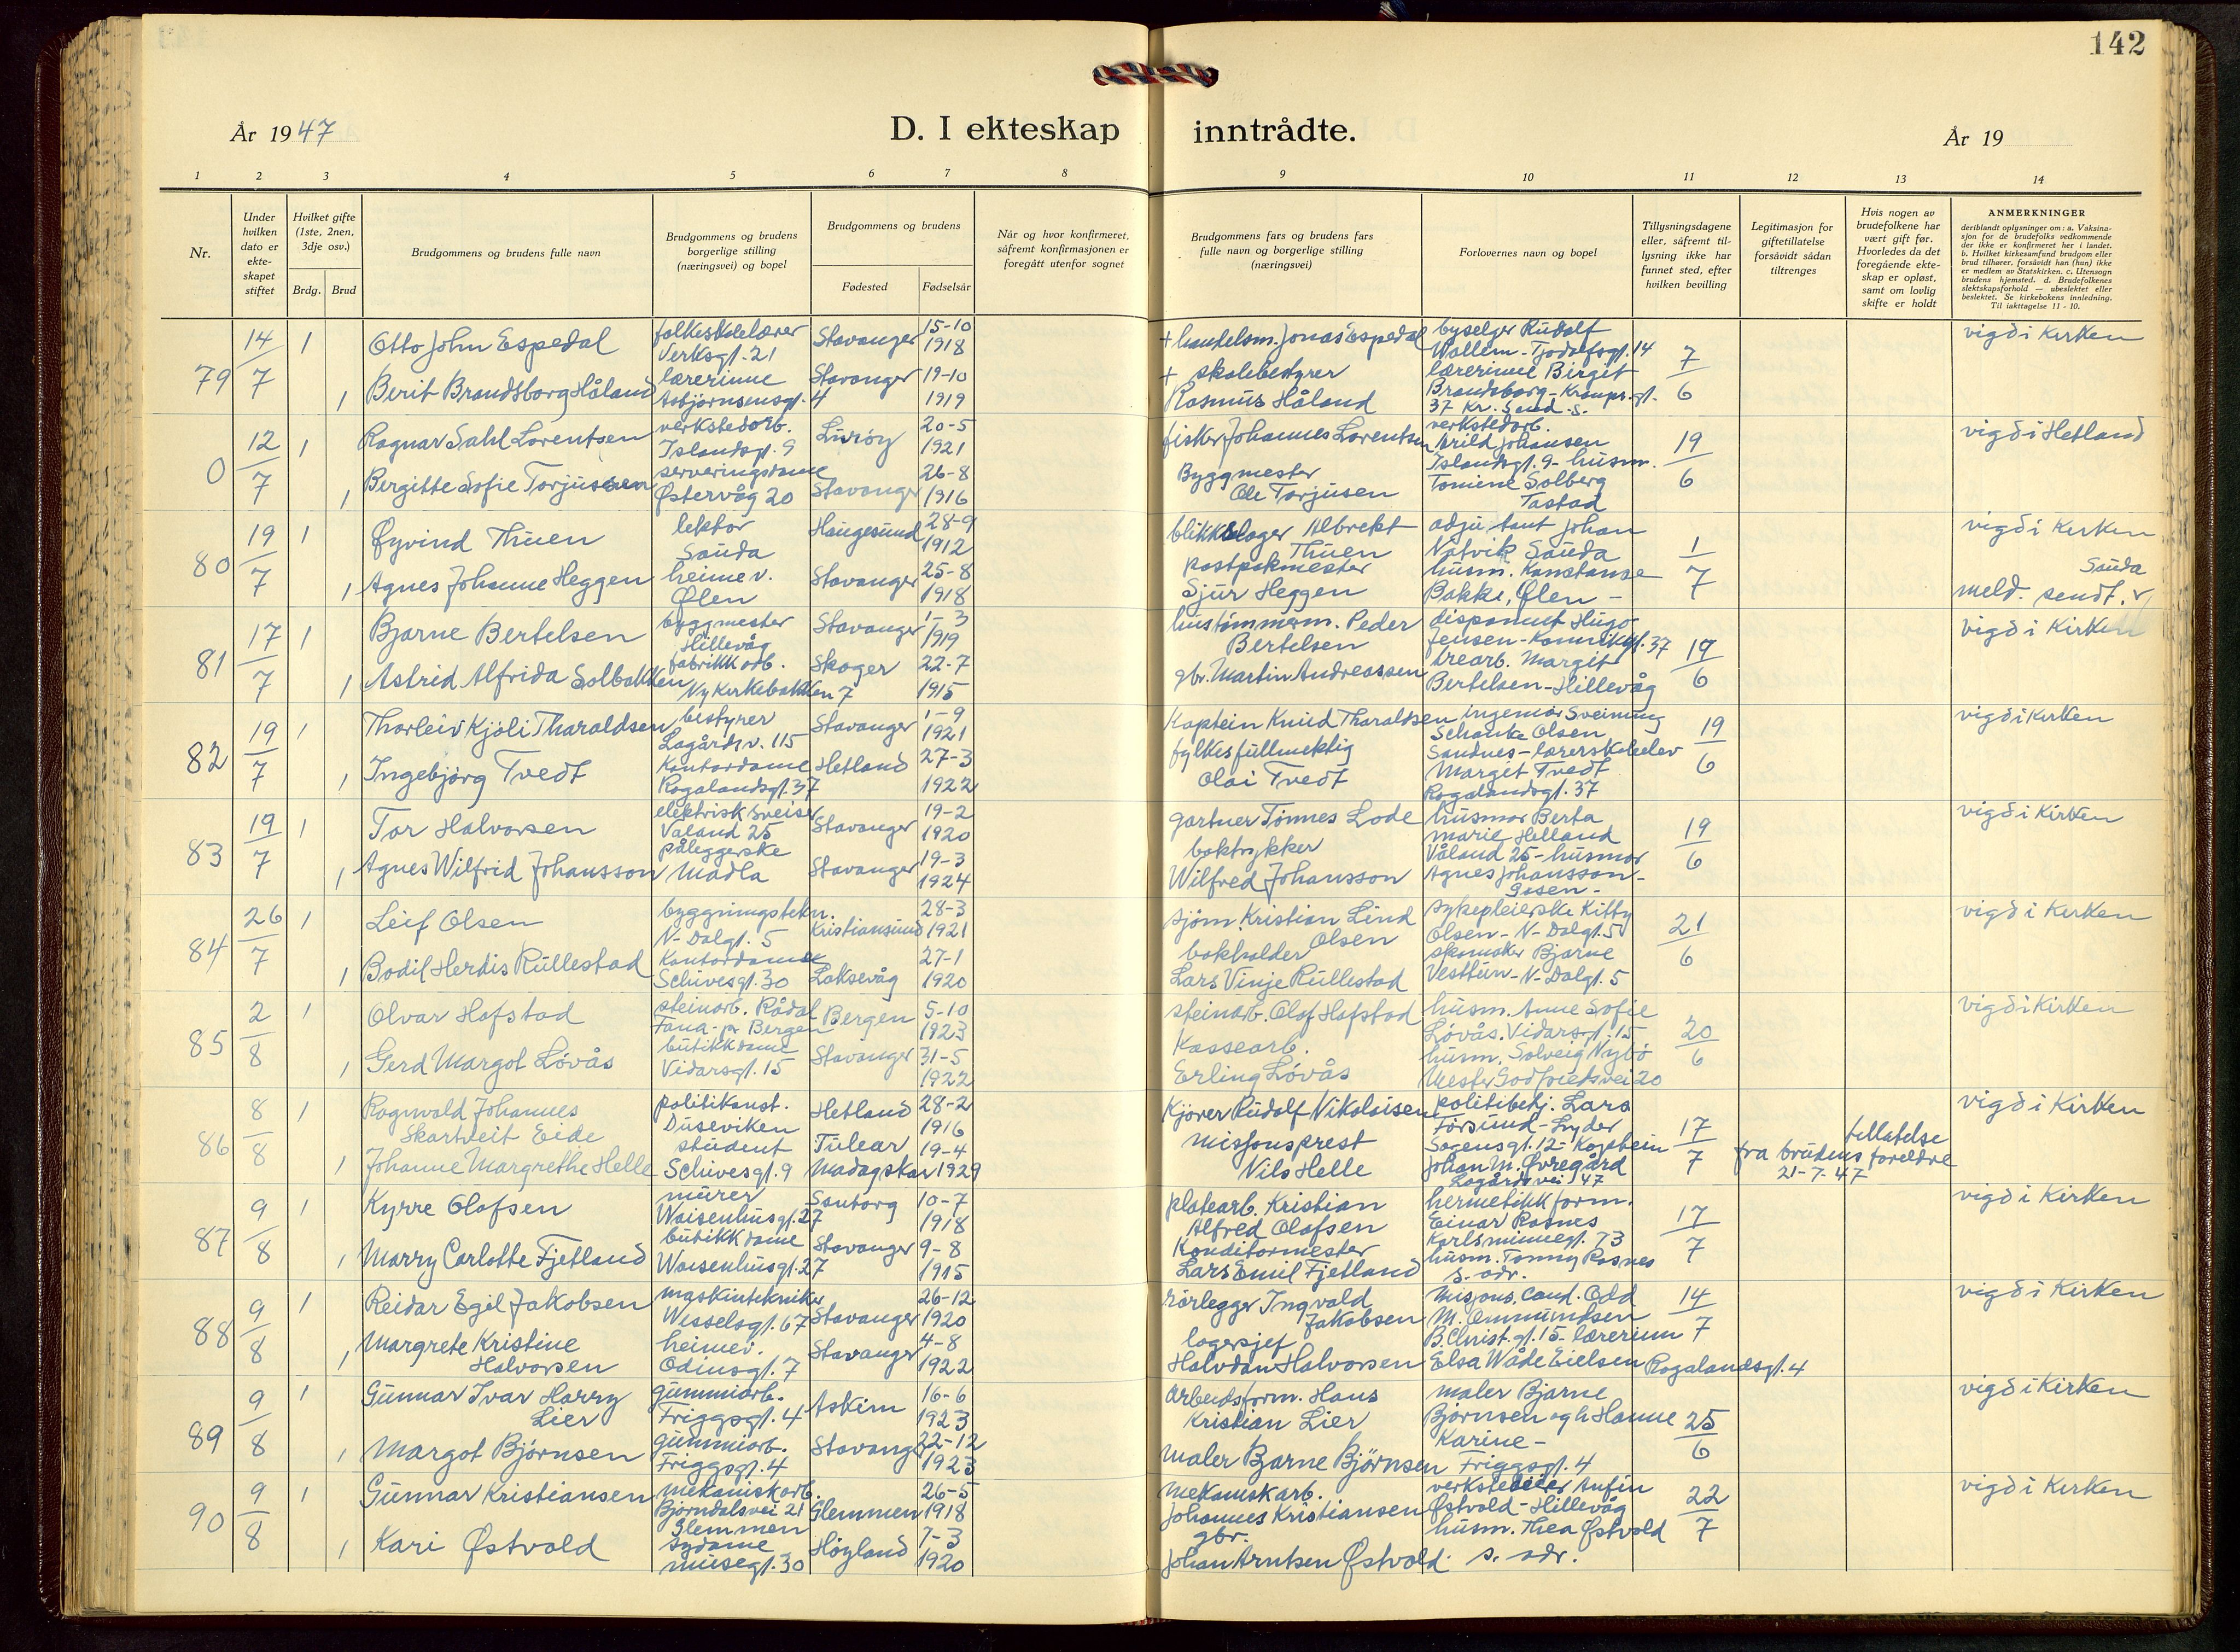 142
År 1947
D. I ekteskap inntrådte.
År 19
1 2 3 4 5 6 7 8 9 10 11 12 13 14
Nr.
Under hvilken dato er ekte-skapet stiftet
Hvilket gifte (1ste, 2nen, 3dje osv.)
Brdg. Brud
Brudgommens og brudens fulle navn
Brudgommens og brudens borgerlige stilling (næringsvei) og bopel
Brudgommens og brudens
Fødested Fødselsår
Når og hvor konfirmeret, såfremt konfirmasjonen er foregått utenfor sognet
Brudgommens fars og brudens fars fulle navn og borgerlige stilling (næringsvei)
Forlovernes navn og bopel
Tillysningsdagene eller, såfremt til-lysning ikke har funnet sted, efter hvilken bevilling
Legitimasjon for giftetillatelse forsåvidt sådan tiltrenges
Hvis nogen av brudefolkene har vært gift før. Hvorledes da det foregående ekte-skap er opløst, samt om lovlig skifte er holdt
ANMERKNINGER
deriblandt oplysninger om: a. Vaksina-sjon for de brudefolks vedkommende der ikke er konfirmeret her i landet. b. Hvilket kirkesamfund brudgom eller brud tilhører, forsåvidt han (hun) ikke er medlem av Statskirken. c. Utensogn brudens hjemsted. d. Brudefolkenes slektskapsforhold — ubeslektet eller beslektet. Se kirkebokens innledning. Til iakttagelse 11 - 10.
79 14/7 1 Otto John Espedal folkeskolelærer Verksgt. 21 Stavanger 15-10 1918 + handelsm. Jonas Espedal byselger Rudolf Wallem - Tjodolfsgt. 14 7/6 vigd i Kirken
1 Berit Brandsborg Håland lærerinne Asbjørnsensgt. 4 Stavanger 19-10 1919 + skolebestyrer Rasmus Håland lærerinne Birgit Brandsborg - Kronpr. gt. 37 Kr. Sand. S.
0 12/7 1 Ragnar Dahl Lorentsen verkstedarb. Islandsgt. 9 Lurøy 20-5 1921 fisker Johannes Lorentsen verkstedarb. Arild Johansen Islandsgt. 9 - husm. 19/6 vigd i Hetland
1 Bergitte Sofie Torjussen serveringsdame Østervåg 20 Stavanger 26-8 1916 Byggmester Ole Torjusen Tomine Solberg Tastad
80 19/7 1 Øyvind Thuen lektor Sauda Haugesund 28-9 1912 blikkslager Albrekt Thuen adjutant Johan Natvik Sauda 1/7 vigd i Kirken
1 Agnes Johanne Heggen heimev. Ølen Stavanger 25-8 1918 postpakmester Sjur Heggen husm. Konstanse Bakke, Ølen - Sauda meld. sendt. v
81 17/7 1 Bjarne Bertelsen byggmester Hillevåg Stavanger 1-3 1919 hustømmerm. Peder Bertelsen disponent Hugo Jensen - Kannikgt. 37 19/6 vigd i Kirken
1 Astrid Alfrida Solbakken fabrikkarb. Ny Kirkebakken 7 Skoger 22-7 1915 gbr. Martin Andreassen trearb. Margit Bertelsen - Hillevåg
82 19/7 1 Thorleiv Kjøli Tharaldsen bestyrer Lagårdsv. 115 Stavanger 1-9 1921 Kaptein Knud Tharaldsen Ingeniør Sveinung Schanke Olsen 19/6 vigd i Kirken
1 Ingebjørg Tvedt Kontordame Rogalandsgt. 37 Hetland 27-3 1922 fylkesfullmektig Olai Tvedt Sandnes - lærerskoleelev Margit Tvedt Rogalandsgt. 37
83 19/7 1 Tor Halvorsen elektrisk sveiser Våland 25 Stavanger 19-2 1920 gartner Tønnes Lode husmor Berta Marie Helland Våland 25 - husmor 19/6 vigd i Kirken
1 Agnes Wilfrid Johansson påleggerske Madla Stavanger 19-3 1924 boktrykker Wilfred Johansson Agnes Johansson - Gosen -
84 26/7 1 Leif Olsen byggningstekn. N- Dalgt. 5 Kristiansund 28-3 1921 sjøm. Kristian Lind Olsen sykepleierske Kitty Olsen - N- Dalgt. 5 21/6 vigd i Kirken
1 Bodil Herdis Rullestad Kontordame Schivesgt. 30 Laksevåg 27-1 1920 bokholder Lars Vinje Rullestad skomaker Bjarne Vestlün - N- Dalgt. 5
85 2/8 1 Olvar Hofstad steinarb. Rådal Fana - pr Bergen Bergen 5-10 1923 steinarb. Olaf Hofstad husm. Anne Sofie Løvås. Vidarsgt. 15 20/6 vigd i Kirken
1 Gerd Margot Løvås butikkdame Vidarsgt. 15 Stavanger 31-5 1922 Kassearb. Erling Løvås husm. Solveig Nybø Mester Godfredsvei 20
86 8/8 1 Ragnvald Johannes Skartveit Eide politikonst. Dusevíken Hetland 28-2 1916 Kjører Rudolf Nikolaisen politibetj. Lars Førsund - Lyder Sagensgt. 12 - 17/7 vigd i Kirken
1 Johanne Margrethe Helle student Schivesgt. 9 Tulear Madagskar 19-4 1929 Misjonsprest Nils Helle Kaptein Johan M. Øvregård Lagårdsvei 47 tillatelse fra brudens foreldre 21-7-47
87 9/8 1 Kyrre Olafsen murer Waisenhusgt. 27 10-7 1918 platearb. Kristian Alfred Olafsen hermetikkform. Einar Rosnes Karlsminnegt. 73 17/7 vigd i Kirken
1 Marry Carlotte Fjetland butikkdame Waisenhusgt. 27 Stavanger 9-8 1915 Konditormester Lars Emil Fjetland husm. Tonny Rosnes s. adr.
88 9/8 1 Reidar Egil Jakobsen maskintekniker Wesselsgt. 67 Stavanger 26-12 1920 rørlegger Ingvald Jakobsen Misjons. Cand. Odd M. Ommundsen 14/7 vigd i Kirken
1 Margrete Kristine Halvorsen heimev. Odinsgt. 7 Stavanger 4-8 1922 lagersjef Halvdan Halvorsen B. Christ. gt. 15 - lærerinn Elsa Wåde Eielsen Rogalandsgt. 4
89 9/8 1 Gunnar Ivar Harry Lier gummiarb. Friggsgt. 4 Askim 16-6 1923 Arbeidsform. Hans Kristian Lier maler Bjarne Bjørnsen og h Hanne Karine - 25/6 vigd i Kirken
1 Margot Bjørnsen gummiarb. Friggsgt. 4 Stavanger 22-12 1923 maler Bjarne Bjørnsen Friggsgt. 4
90 9/8 1 Gunnar Kristiansen mekanisk arb. Bjørndalsvei 21 Glemmen Glemmen 26-5 1918 Mekanisk arb. Johannes Kristiansen verkstedeier Anfin Østvold - Hillevåg 22/7 vigd i Kirken
1 Kari Østvold sydame musegt. 30 Høyland 7-3 1920 gbr. Johan Arntsen Østvold husm. Thea Østvold s. adr.